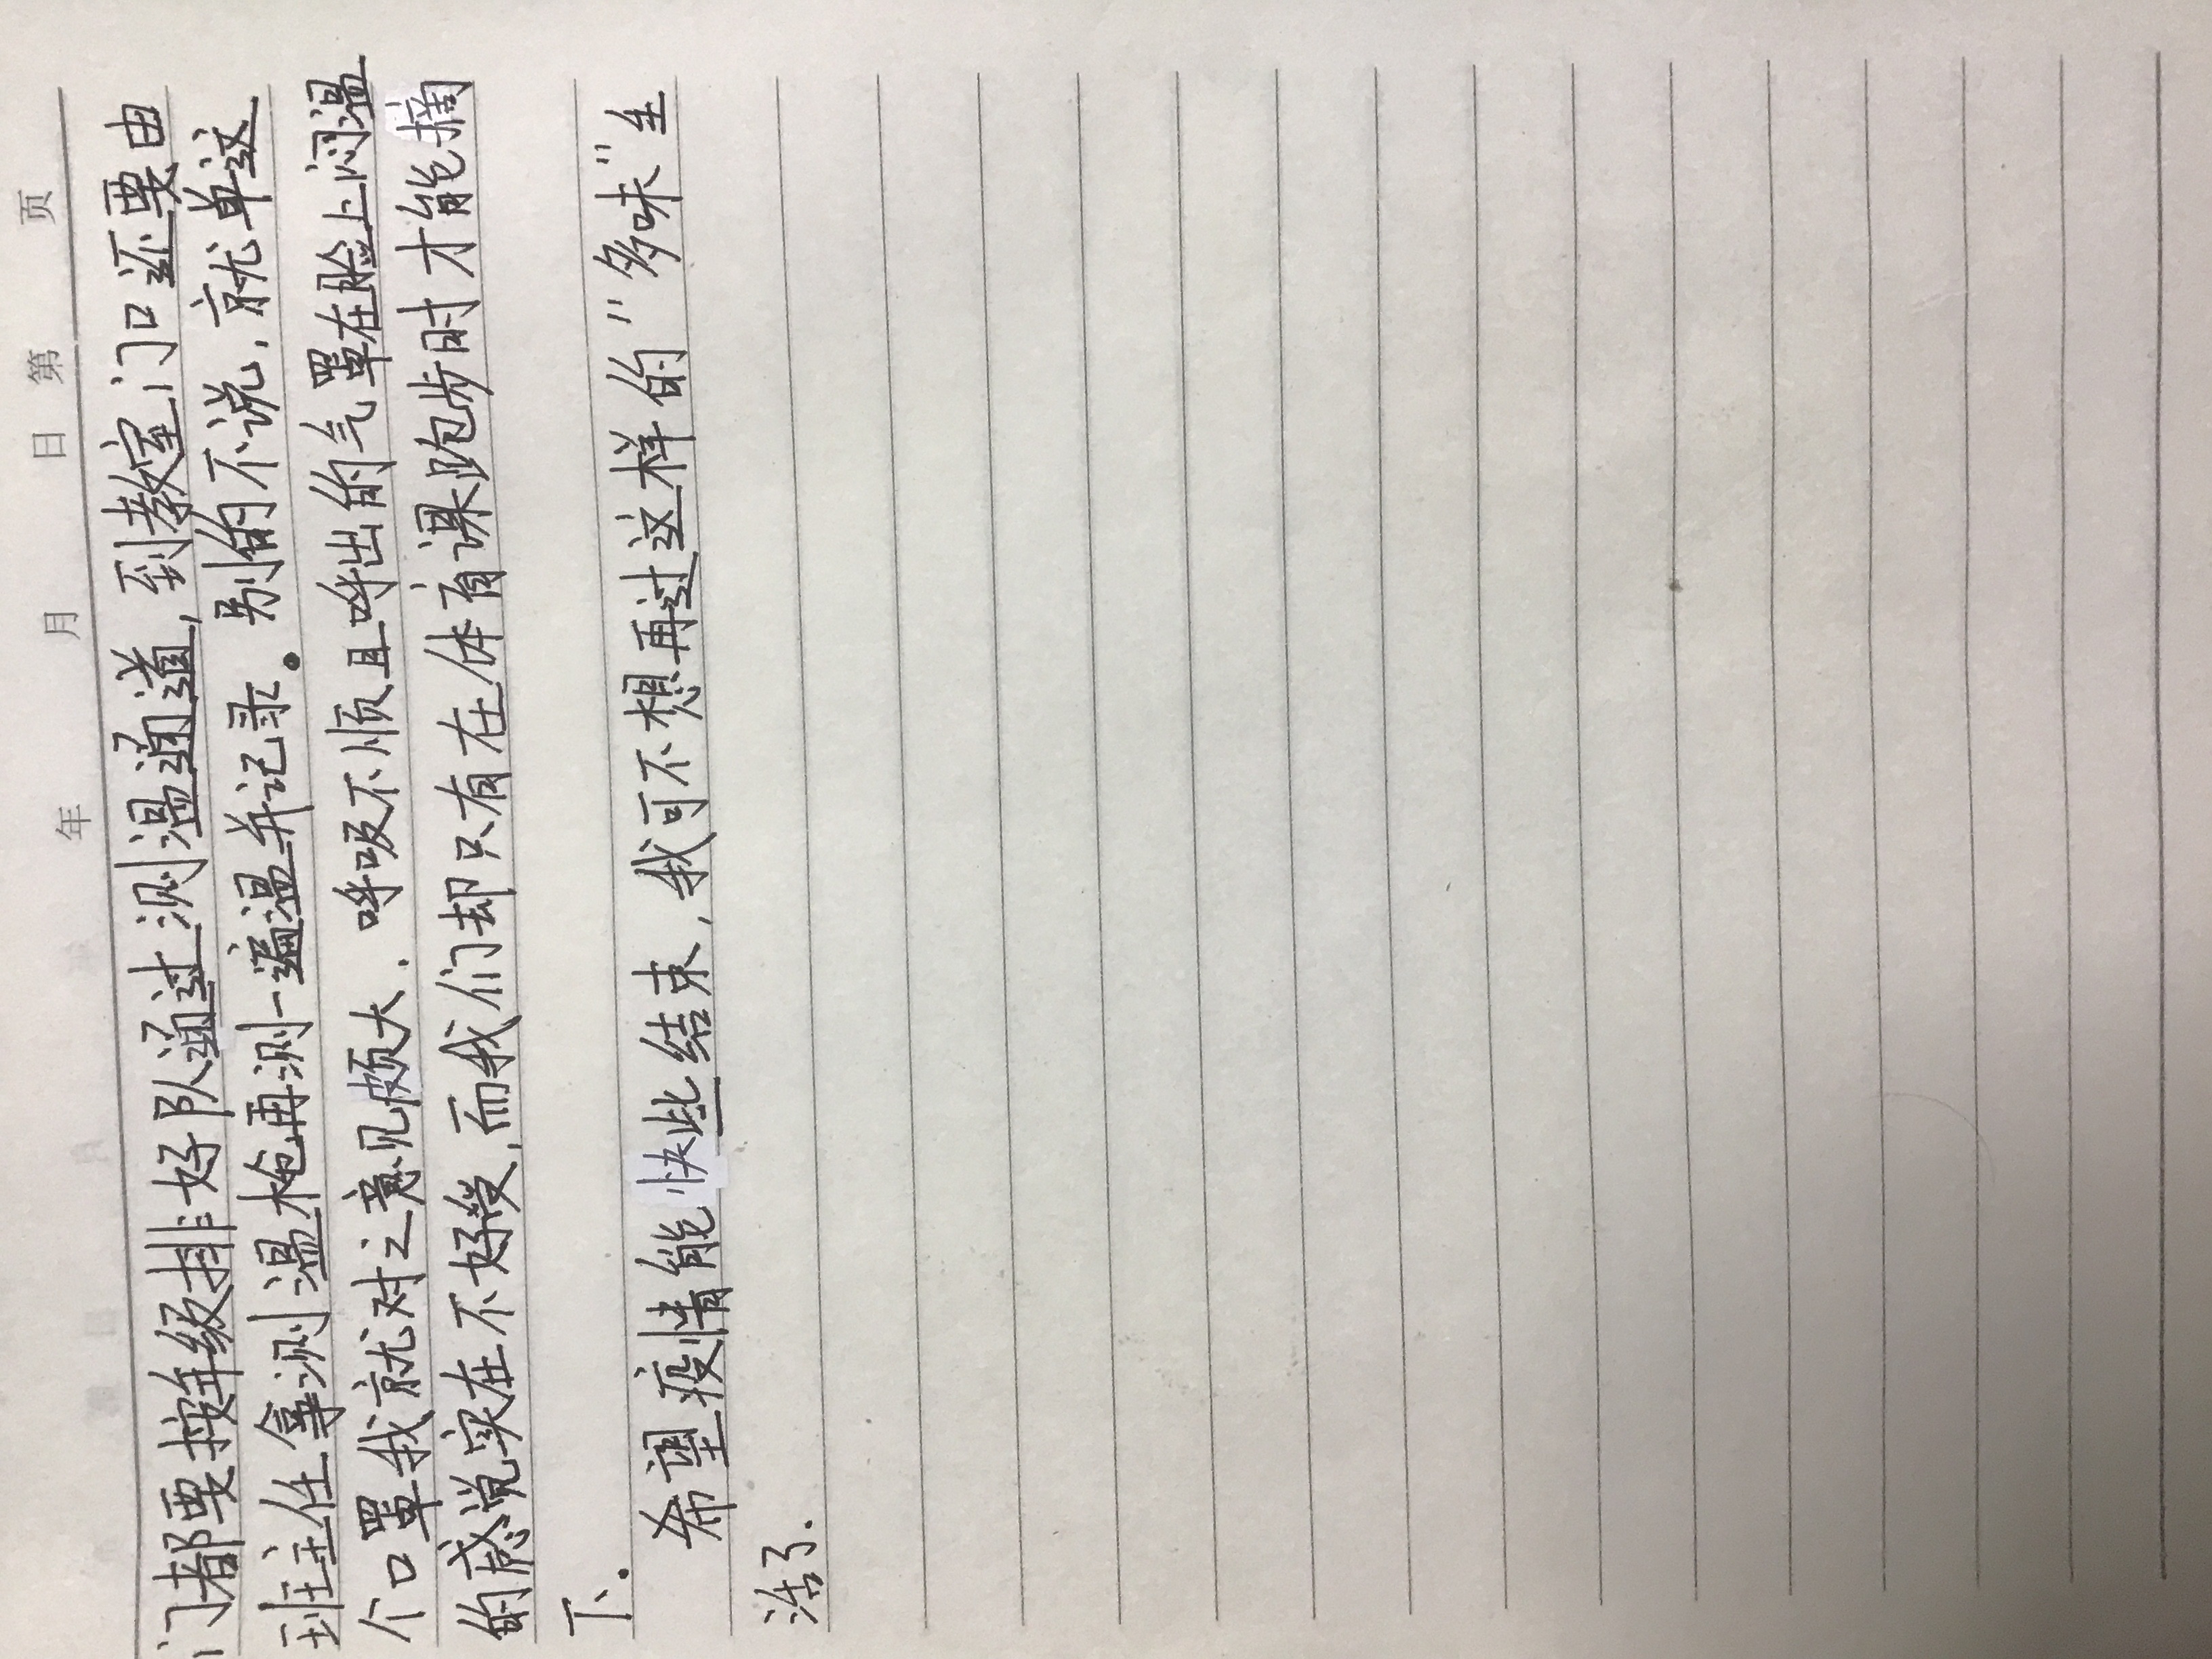 年 月 日 第 页
门都要按年级排好队通过测温通道，到教室门口还要由
班主任拿测温枪再测一遍温并记录。别的不说，就单这
个口罩我就对之意见颇大．呼吸不顺且呼出的气罩在脸上闷温
的感觉实在不好受，而我们却只有在体育课跑步时才能摘
下．
希望疫情能快些结束，我可不想再过这样的"多味"生
活了．